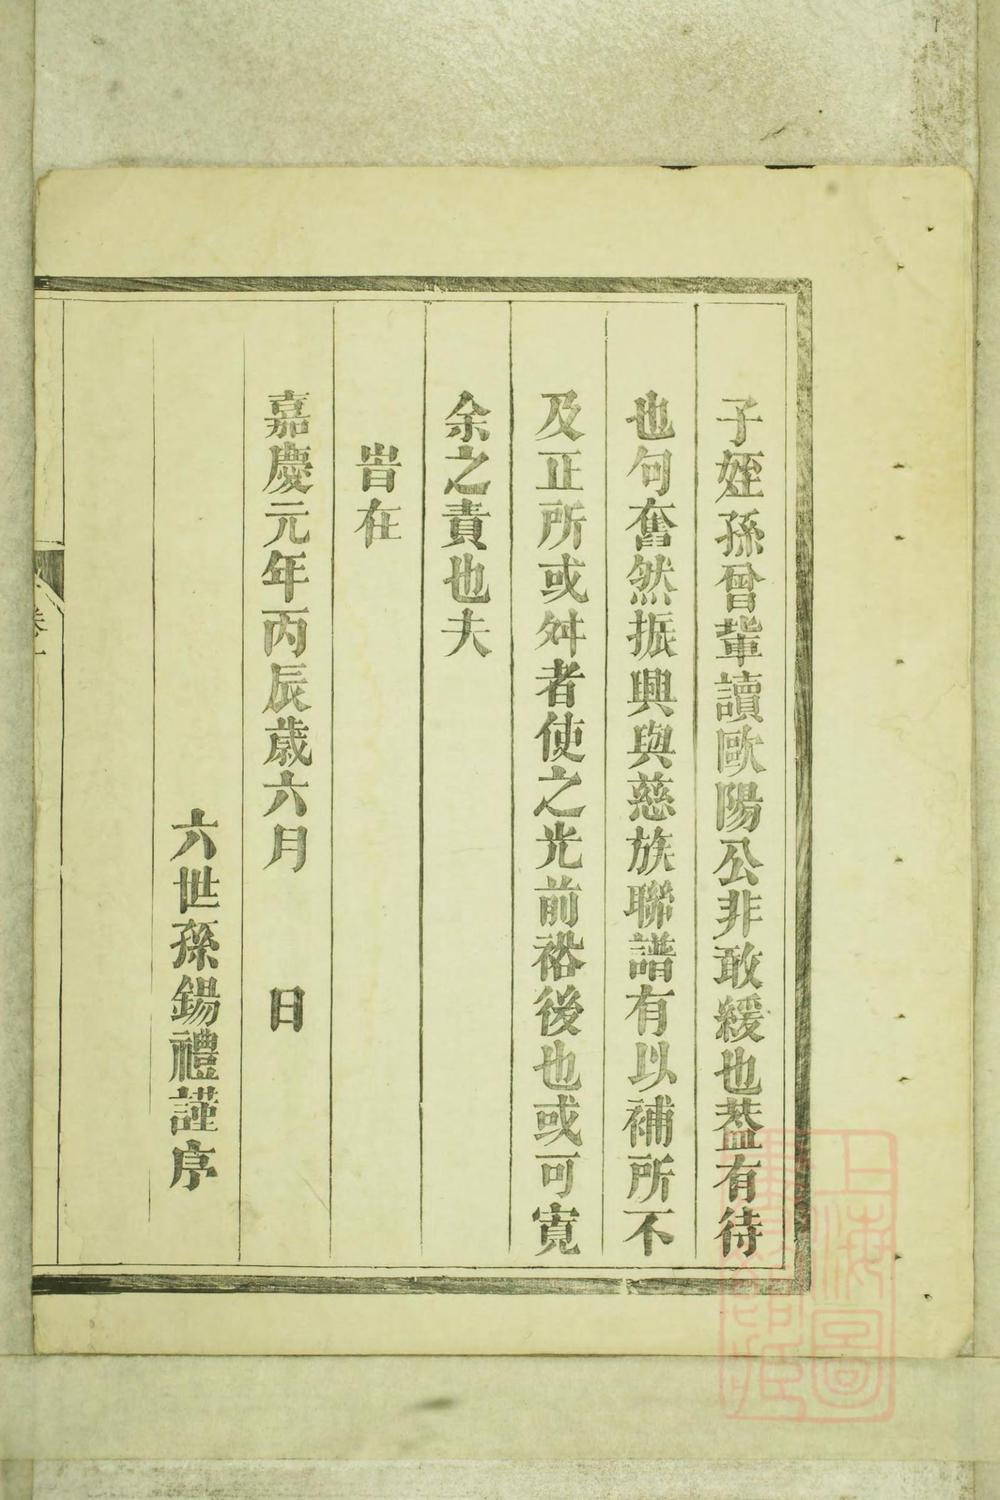 子姪孫曾輩讀歐陽公非敢緩也葢有待
也句奮然振興與慈族聯譜有以補所不
及正所或舛者使之光前裕後也或可寛
余之責也夫
旹在
嘉慶元年丙辰歲六月 日
六世孫錫禮謹序
卷一
上海圖
書館藏